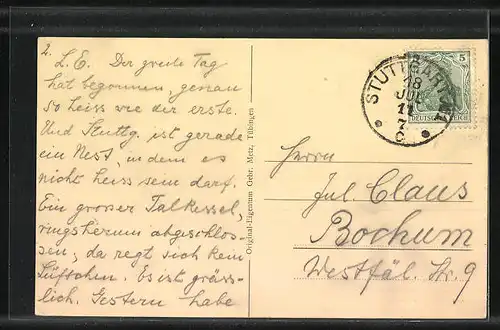 2.
L. E. Der zweite Tag
hat begonnen, genau
so heiss wie der erste.
Und Stuttg. ist gerade
ein Nest, in dem es
nicht heiss sein darf.
Ein grosser Talkessel,
ringsherum abgeschlos-
sen, da regt sich kein
Lüftchen. Es ist gräss-
lich. Gestern habe
Original-Eigentum Gebr. Metz, Tübingen
STUTTGART
18
JUL
11
5
DEUTSCHES REICH
Herrn
Jul. Claus
Bochum
Westfäl. Str. 9